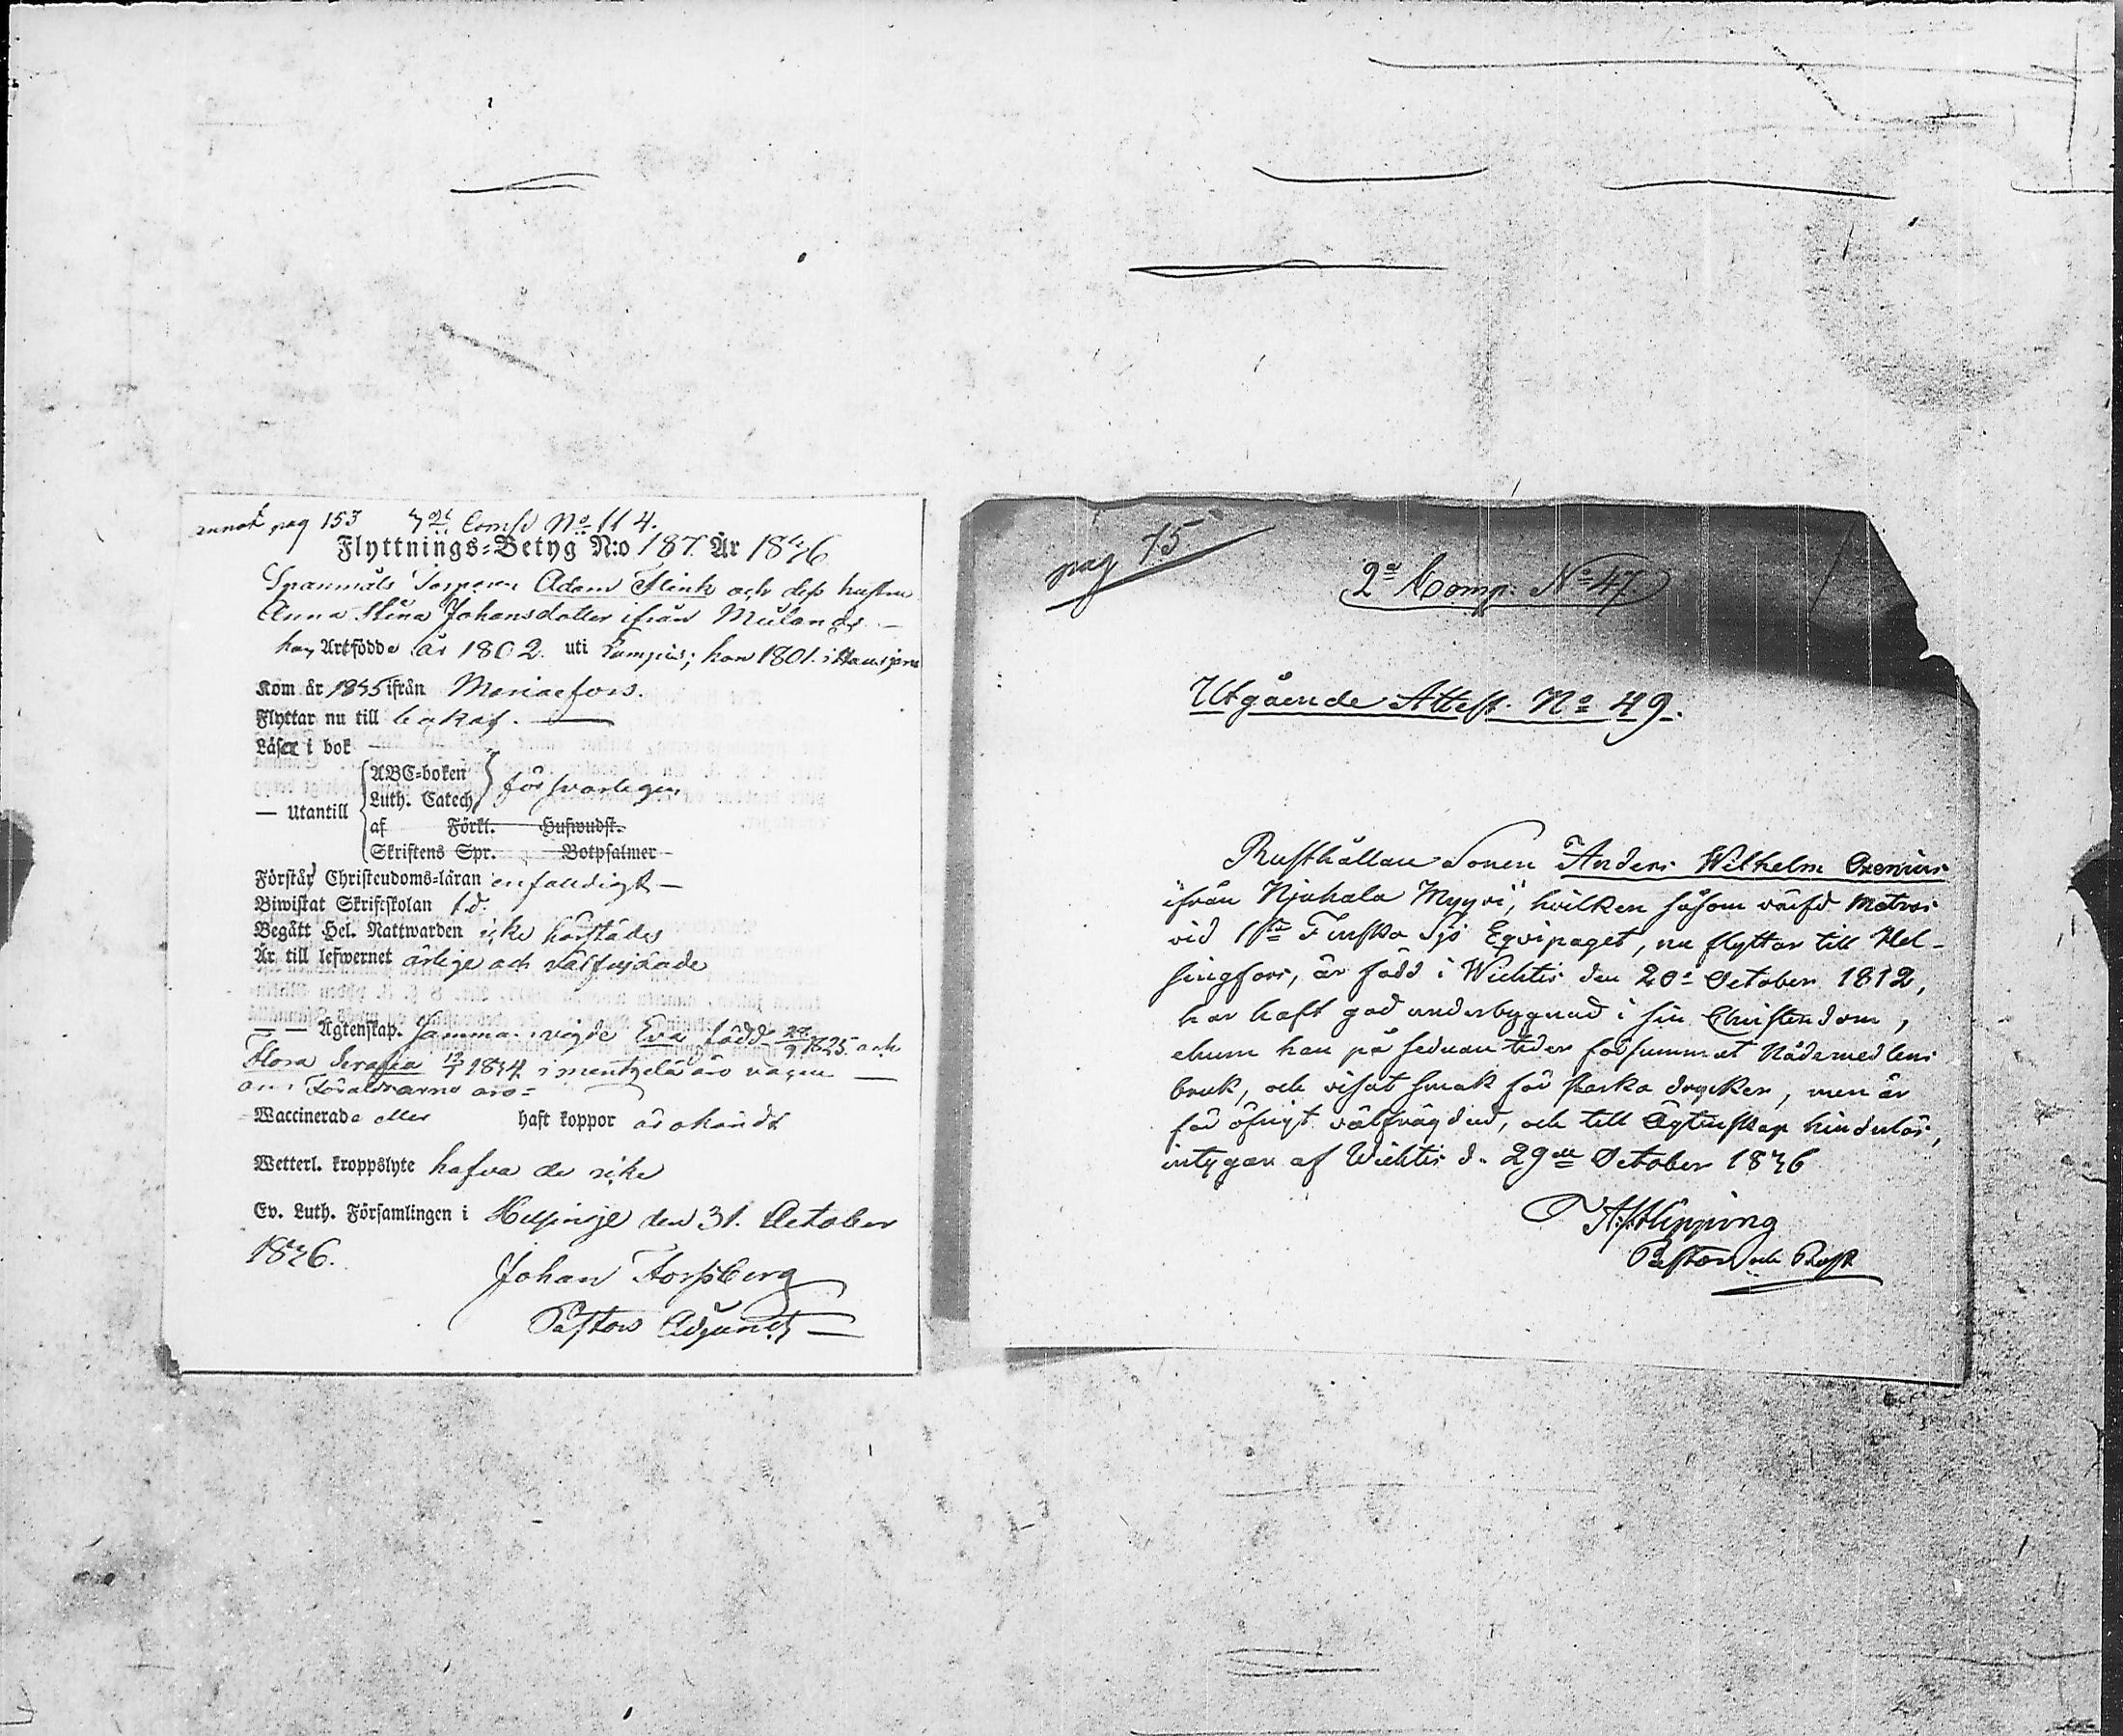 pag 153 7de Comp No 114.
Flyttnings-Betyg N:o 187 År 1846
Spanmåls Torparen Adam Flink och dess hustru
Anna Stina Johansdotter ifrån
han Äre födde år 1802 uti ; hon 1801. i Hausjärvi
Kom år 1845 ifrån Mariaefors.
Flyttar nu till bakas.
Läser i bok
— Utantill
ABC-boken
Luth. Catech. försvarligen
af Förkl. Huswudst.
Skriftens Spr. Botpsalmer
Förstår Christendoms-läran enfaldigt —
Biwistat Skriftskolan
Begått Hel. Nattwarden icke härstädes
Är till lefwernet ärlige och välfrejdade
— — Ägtenskap. Samma vigde Eva född 1825 och
Flora Serafia 12/1 1834 i
om Föräldrarne äro
Waccinerade eller haft koppor är okändt
Wetterl. kroppslyte hafva de icke
Ev. Luth. Församlingen i Helsinge den 31. October
1846.
Johan Forssberg
Pastors Adjunct
pag 75
2a Comp. No 47.
Utgående Attest. No 49.
Rusthållare Sonen Anders Wilhelm Oxenius
ifrån Njuhala Myyri, hvilken såsom värfd Matros
vid 1sta Finska Sjö Eqvipaget, nu flyttar till Hel-
singfors, är född i Wichtis den 20: October 1812,
har haft god underbyggnad i sin Christendom,
ehuru han på sednare tider försummat Nådemedlens
bruk, och visat smak för starka drycker, men är
för öfrigt välfrägdad, och till Ägtenskap hinderlös,
intygar af Wichtis d. 29de October 1846
Pastor och Prost